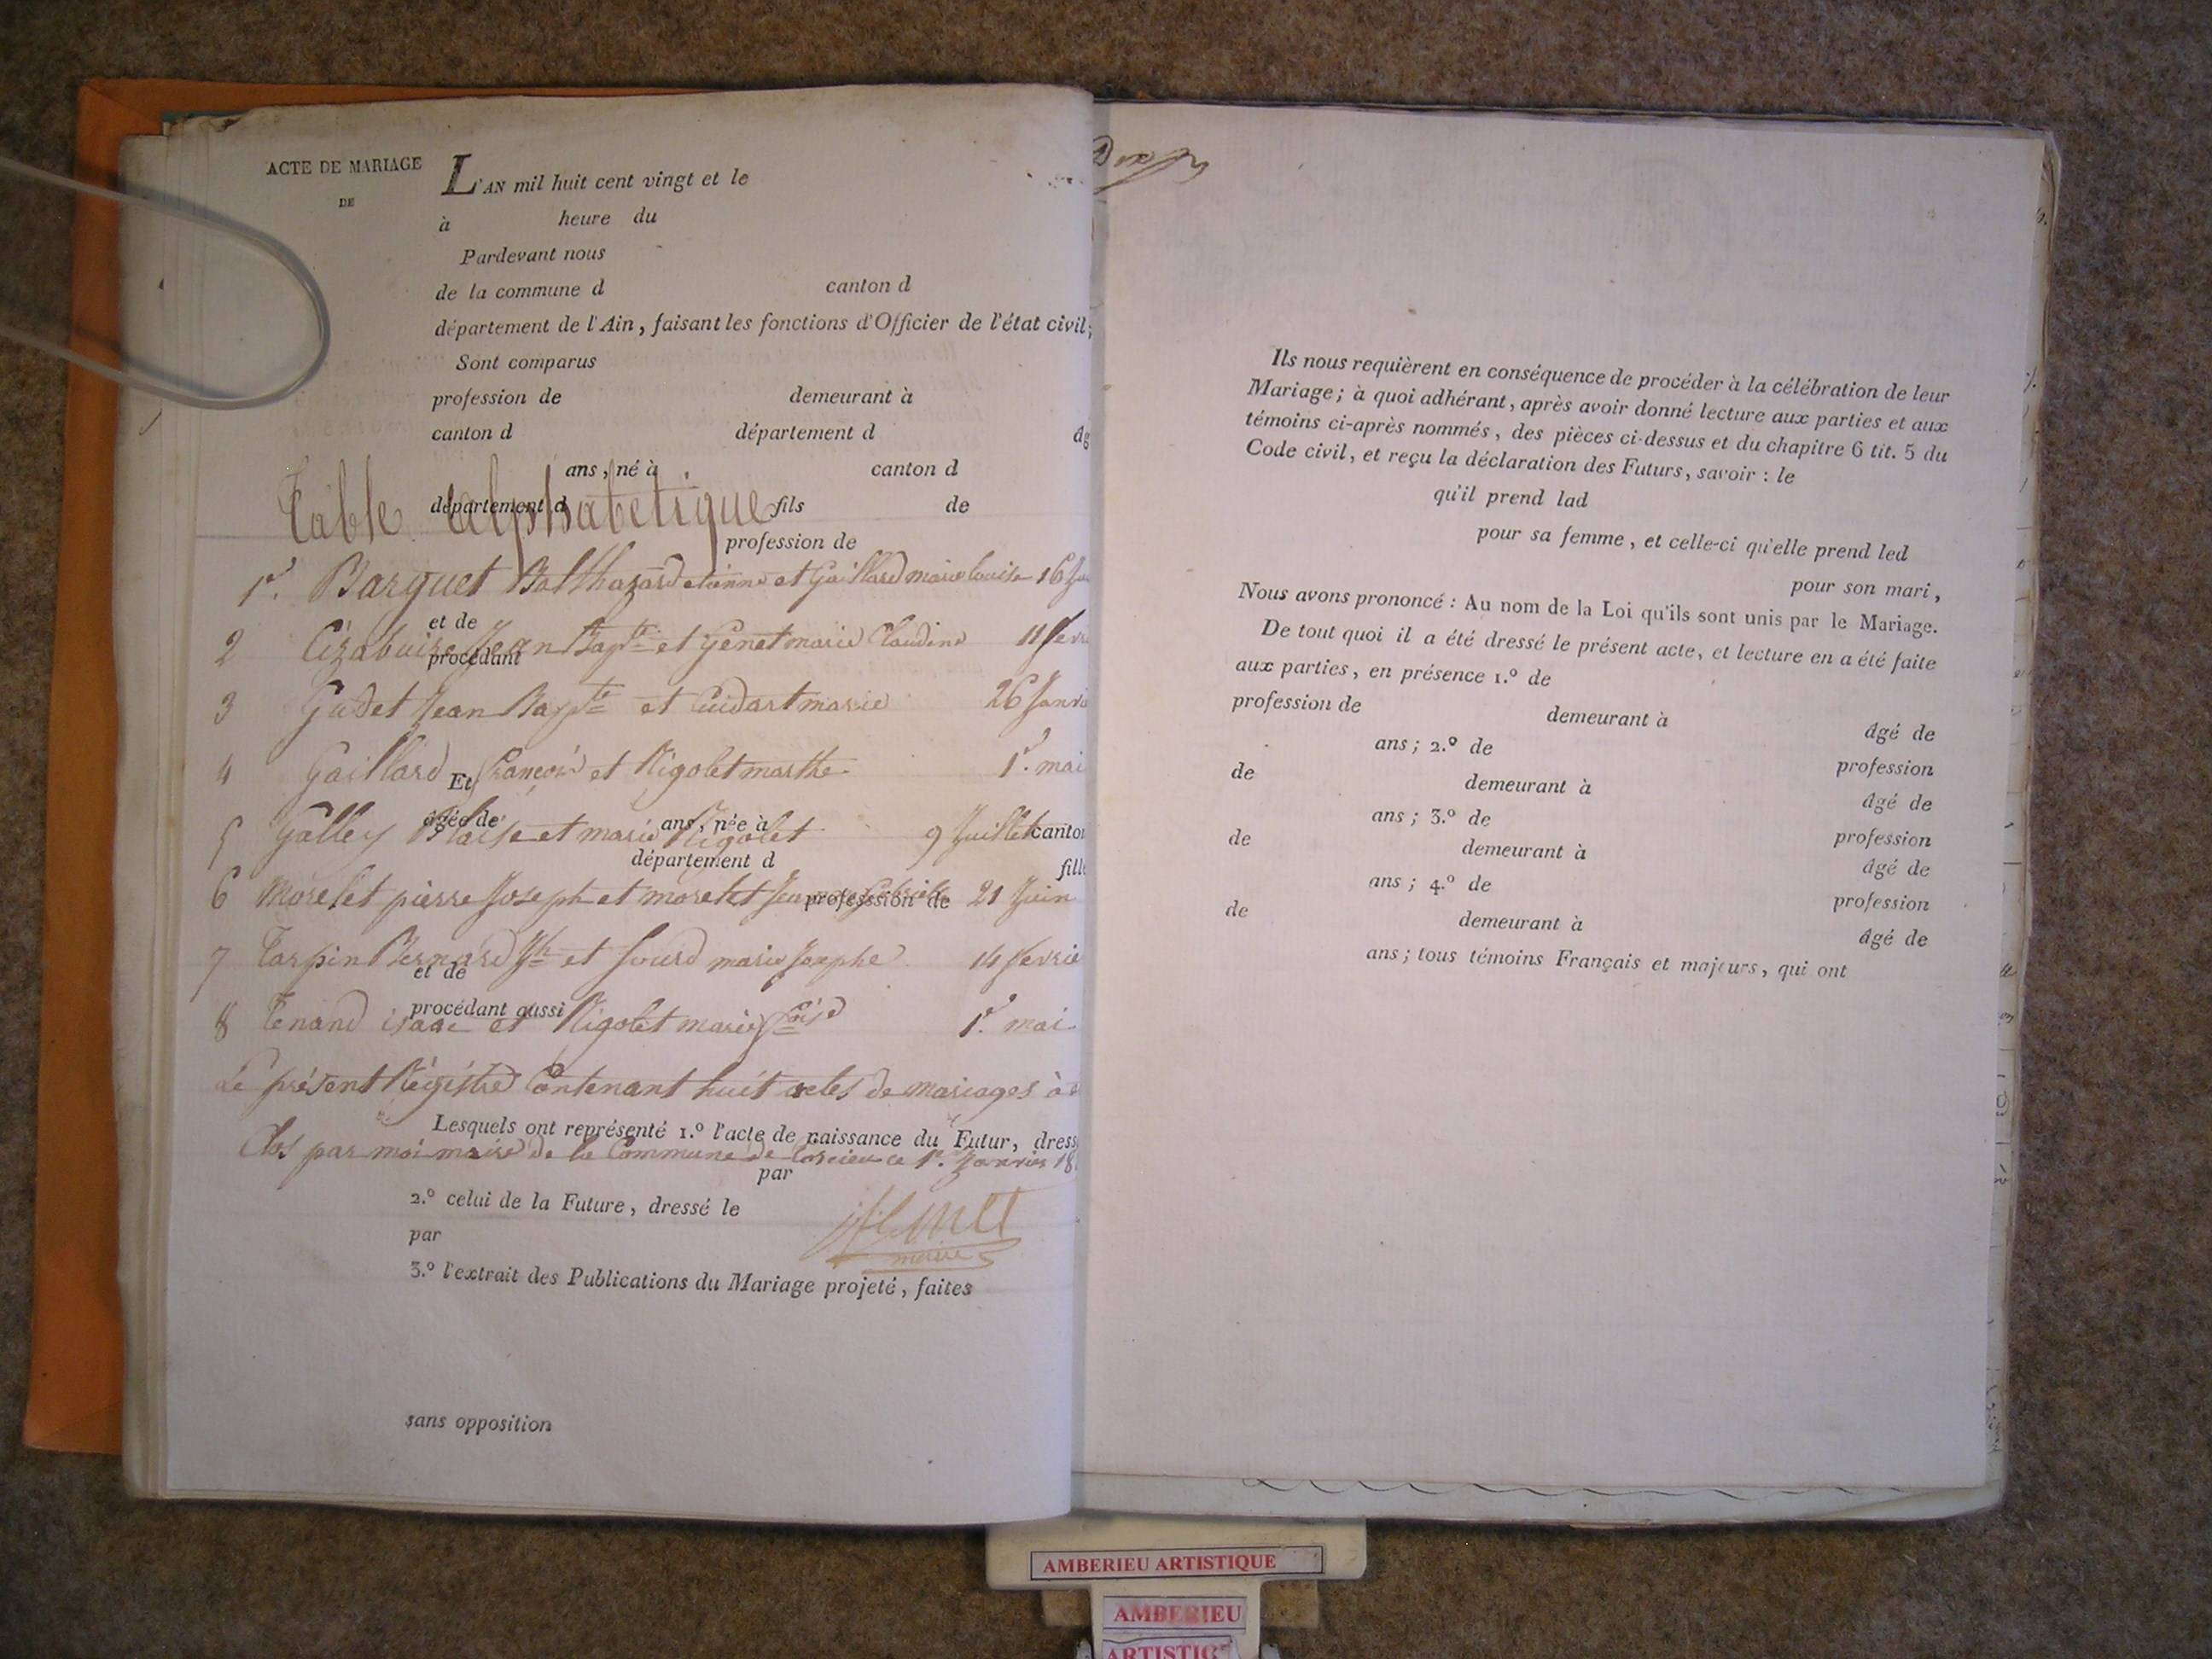 ACTE DE MARIAGE
DE
L'AN mil huit cent vingt et le
à heure du
Pardevant nous
de la commune d canton d
département de l'Ain, faisant les fonctions d'Officier de l'état civil;
Sont comparus
profession de demeurant à
canton d département d âg
ans, né à canton d
département d fils de
Table alphabetique
profession de
1er. Barquet Balthazard etienne et Gaillard marie louise 16 Jan
et de
2 Cizabuire Jean Bapte et Genet marie Claudine 11 fevr
procédant
3 Gudet Jean Bapte et Cuidart marie 26 Janvi
4 Gaillard françois et Rigolet marthe 1er. mai
Et
âgée de ans, née à canton
5 Galley Blaise et marie Rigolet 9 Juillet
département d fille
6 Morelet pierre Joseph et morelet 21 Juin
professsion de
7 Tarpin Bernard Jh et sourd marie Josephe 14 fevrie
et de
procédant aussi
8 Tenand isaac et Rigolet marie fçoise 1er. mai
Le présent Régistre Contenant huit actes de mariages à é
Lesquels ont représenté 1.º l'acte de naissance du Futur, dress
Clos par moi maire de la Commune de le 1er. Janvier 18
par
2.º celui de la Future, dressé le
par
maire
3.º l'extrait des Publications du Mariage projeté, faites
sans opposition
Ils nous requièrent en conséquence de procéder à la célébration de leur
Mariage; à quoi adhérant, après avoir donné lecture aux parties et aux
témoins ci-après nommés, des pièces ci-dessus et du chapitre 6 tit. 5 du
Code civil, et reçu la déclaration des Futurs, savoir : le
qu'il prend lad
pour sa femme, et celle-ci qu'elle prend led
pour son mari,
Nous avons prononcé : Au nom de la Loi qu'ils sont unis par le Mariage.
De tout quoi il a été dressé le présent acte, et lecture en a été faite
aux parties, en présence 1.º de
profession de demeurant à âgé de
ans; 2.º de profession
de demeurant à âgé de
ans; 3.º de profession
de demeurant à âgé de
ans; 4.º de profession
de demeurant à âgé de
ans; tous témoins Français et majeurs, qui ont
AMBERIEU ARTISTIQUE
AMBERIEU
ARTISTIQ